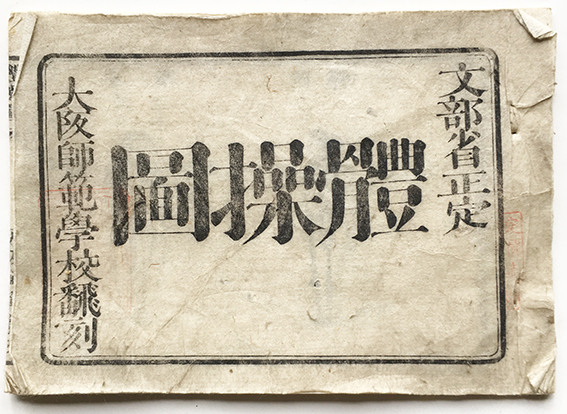 文部省正定
體操圖
大阪師範學校飜刻